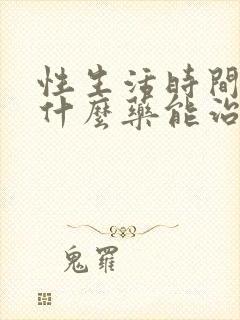 性生活時間
什麼藥能治
鬼羅